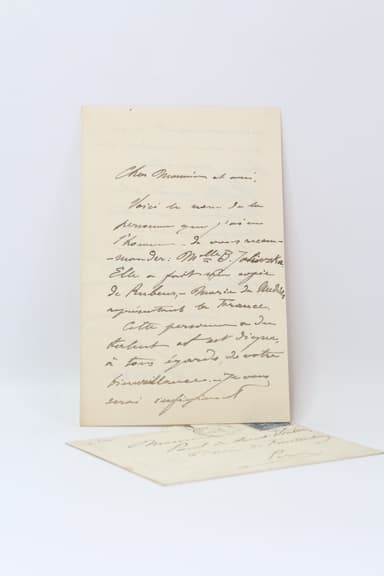 Cher Monsieur et ami,
Voici le nom de la
personne que j'ai eu
l'honneur de vous recom-
-mander: Mlle B.
Elle a fait une copie
de Rubens, Marie de Médicis
représentant la France.
Cette personne a du
talent et est digne,
à tous égards, de votre
bienveillance. Je vous
serai infiniment
Monsieur
Paul de